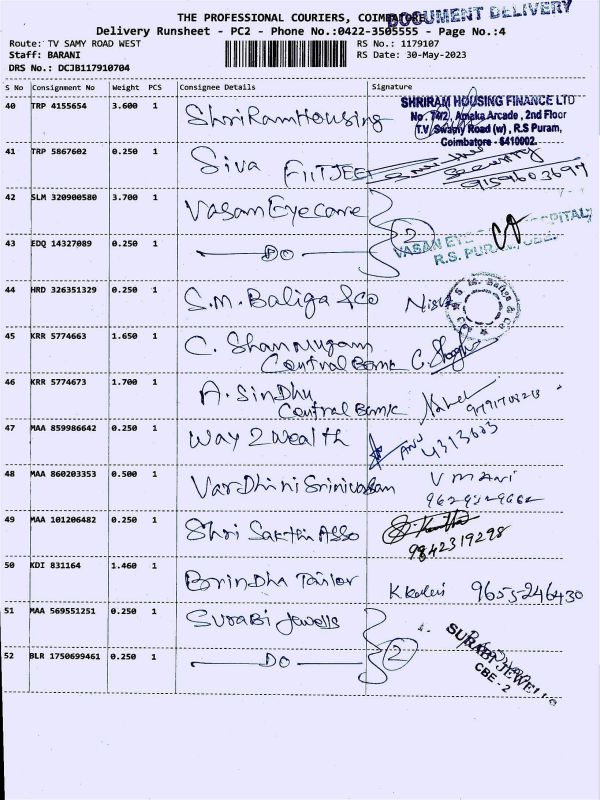 DOCUMENT DELIVERY
THE PROFESSIONAL COURIERS, COIMBATORE
Delivery Runsheet - PC2 - Phone No.:0422-3505555 - Page No.:4
Route: TV SAMY ROAD WEST RS No.: 1179107
Staff: BARANI RS Date: 30-May-2023
DRS No.: DCJB117910704
S No Consignment No Weight PCS Consignee Details Signature
40 TRP 4155654 3.600 1 Shri Ram Housing
SHRIRAM HOUSING FINANCE LTD
No. 74/2, Amaka Arcade, 2nd Floor
T.V. Swamy Road (w), R.S Puram,
Coimbatore - 6410002.
41 TRP 5867602 0.250 1 Siva FIITJEE Security
9159603697
42 SLM 320900580 3.700 1 Vasan Eye care 2
43 EDQ 14327089 0.250 1 DO
VASAN EYE HOSPITAL
R.S. PURAM
44 HRD 326351329 0.250 1 S.M. Baliga & Co
S. M. Baliga & Co
45 KRR 5774663 1.650 1 C. Shanmugam
Central Bank
46 KRR 5774673 1.700 1 A. Sindhu
Central Bank
47 MAA 859986642 0.250 1 Way 2 Wealth ANU 4313603
48 MAA 860203353 0.500 1 Vardhini Srinivasan V mani
49 MAA 101206482 0.250 1 Shri Sakthi Asso
9842319298
50 KDI 831164 1.460 1 Brindha Tailor 9655246430
51 MAA 569551251 0.250 1 Surabi Jewells 2
52 BLR 1750699461 0.250 1 DO
SURABI JEWELLS
CBE - 2